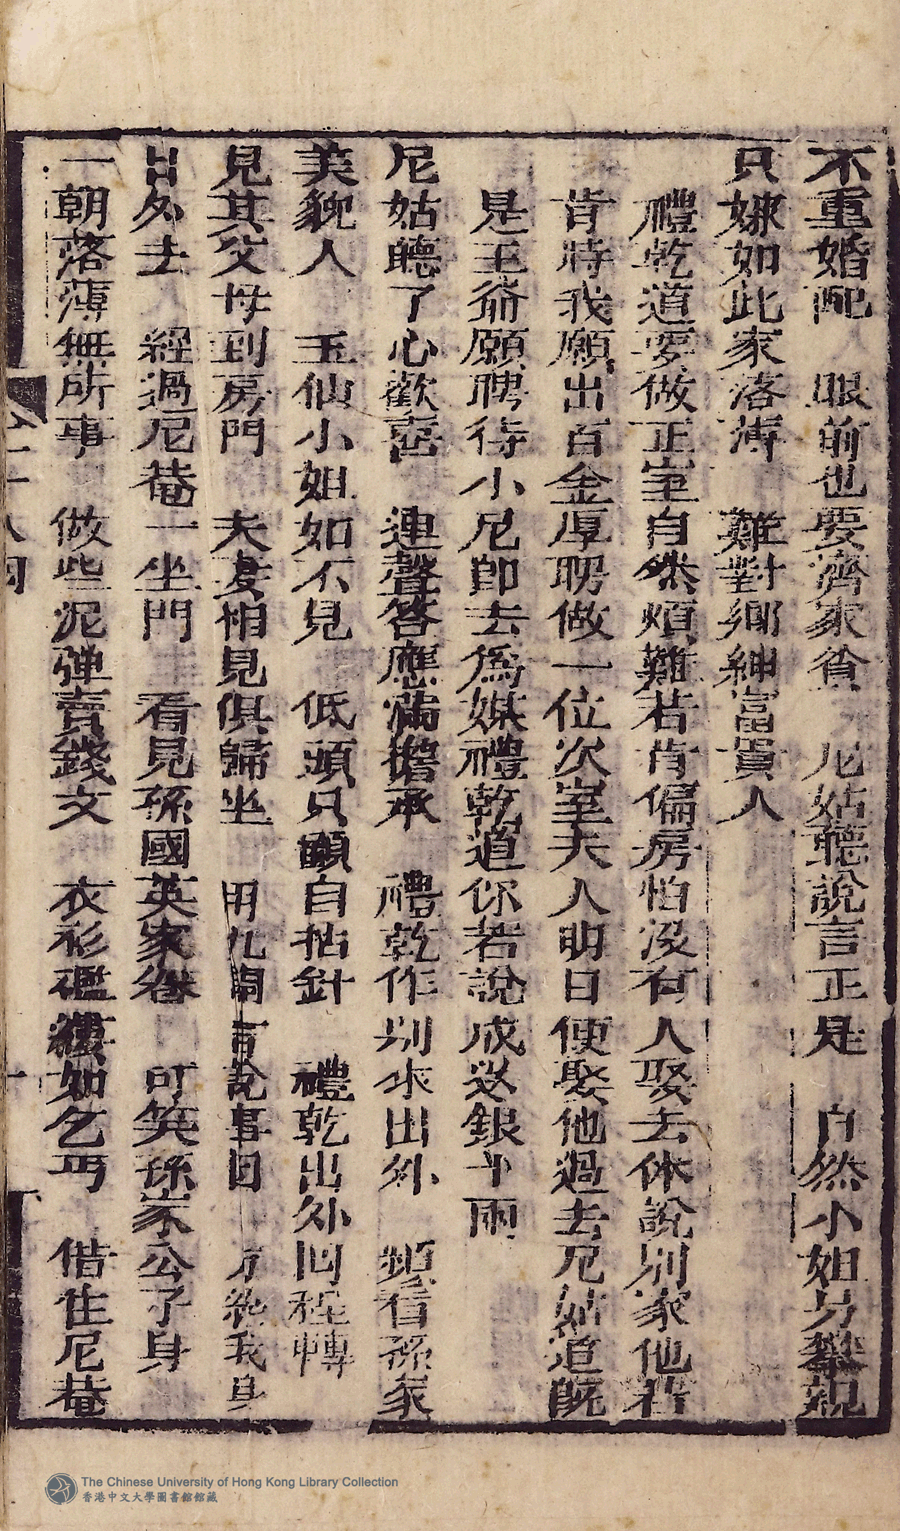 不重婚配 眼前也要濟家貧 尼姑聽說言正是 自然小姐另攀親
只嫌如此家落薄 難對鄉紳富貴人
禮乾道要做正室自然煩難若肯偏房怕沒有人娶去休說別家他若
肯時我願出百金厚聘做一位次室夫人明日便娶他過去尼姑道既
是王爺願聘待小尼即去為媒禮乾道你若說成送銀十兩
尼姑聽了心歡喜 連聲答應滿擔承 禮乾作別來出外 頻看孫家
美貌人 玉仙小姐如不見 低頭只顧自拈針 禮乾出外回程轉
見其父母到房門 夫妻相見俱歸坐 開言說事因 方纔我身
日外去 經過尼菴一坐門 看見孫國英家卷 可笑孫家公子身
一朝落薄無所事 做些泥弹賣錢文 衣衫襤褸如乞丐 借住尼菴
The Chinese University of Hong Kong Library Collection
香港中文大學圖書館館藏